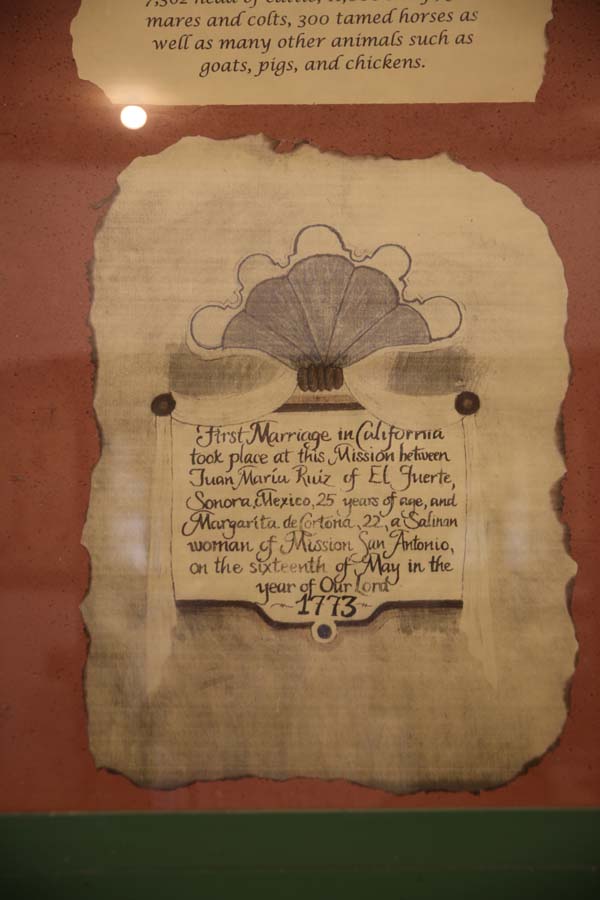 mares and colts, 300 tamed horses as
well as many other animals such as
goats, pigs, and chickens.
First Marriage in California
took place at this Mission between
Juan María Ruiz of El Fuerte,
Sonora, Mexico, 25 years of age, and
Margarita de Cortona, 22, a Salinan
woman of Mission San Antonio,
on the sixteenth of May in the
year of Our Lord
~1773~